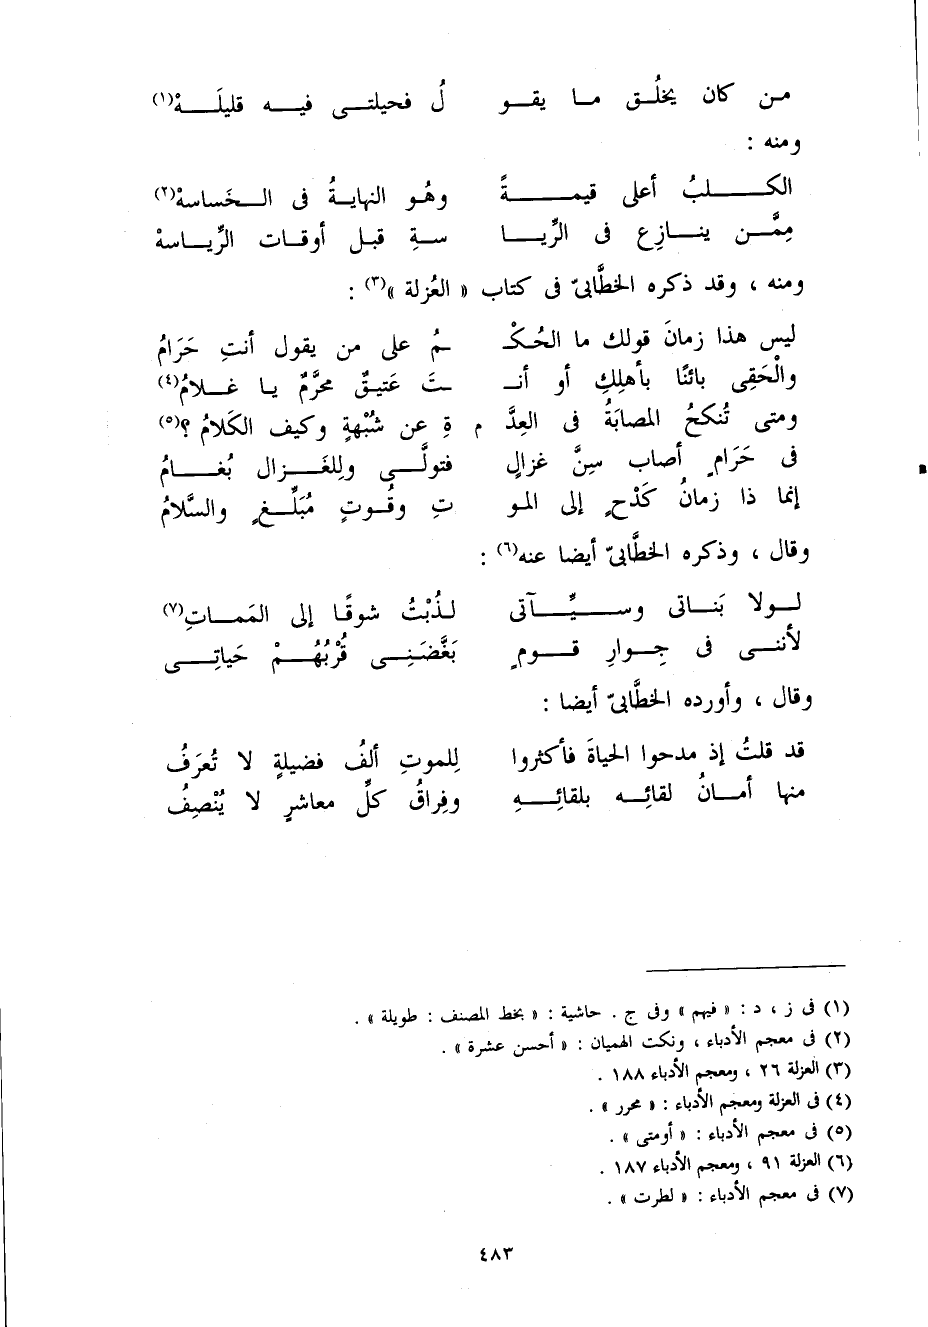 من كان يخلُق ما يقو لُ فحيلتى فيه قليلَهْ(١)
ومنه :
الكلبُ أعلى قيمةً وهُو النهايةُ فى الخَساسهْ(٢)
مِمَّن ينازِع فى الرِّيا سةِ قبل أوقات الرِّياسهْ
ومنه ، وقد ذكره الخطَّابىّ فى كتاب « العُزلة »(٣) :
ليس هذا زمانَ قولك ما الحُكْـ ـمُ على من يقول أنتِ حَرَامُ
والْحَقِى بائنًا بأهلِكِ أو أنـ ـتَ عَتيقٌ محرَّمٌ يا غلامُ(٤)
ومتى تُنكحُ المصابَةُ فى العِدَّ م ةِ عن شُبْهةٍ وكيف الكَلامُ ؟(٥)
فى حَرَامٍ أصاب سِنَّ غزالٍ فتولَّى ولِلغَزال بُغَامُ
إنما ذا زمانُ كَدْحٍ إلى المو تِ وقُوتٍ مُبَلِّغٍ والسَّلامُ
وقال ، وذكره الخطَّابىّ أيضا عنه(٦) :
لولا بَناتى وسيِّآتى لذُبْتُ شوقًا إلى المَماتِ(٧)
لأننى فى جِوارِ قومٍ بَغَّضَنِى قُرْبُهُمْ حَياتِى
وقال ، وأورده الخطَّابىّ أيضا :
قد قلتُ إذ مدحوا الحياةَ فأكثروا لِلموتِ ألفُ فضيلةٍ لا تُعرَفُ
منها أمانُ لقائِه بلقائِهِ وفِراقُ كلِّ معاشرٍ لا يُنْصِفُ
(١) فى ز ، د : « فيهم » وفى ج . حاشية : « بخط المصنف : طويلة » .
(٢) فى معجم الأدباء ، ونكت الهميان : « أحسن عشرة » .
(٣) العزلة ٢٦ ، ومعجم الأدباء ١٨٨ .
(٤) فى العزلة ومعجم الأدباء : « محرر » .
(٥) فى معجم الأدباء : « أومتى » .
(٦) العزلة ٩١ ، ومعجم الأدباء ١٨٧ .
(٧) فى معجم الأدباء : « لطرت » .
٤٨٣